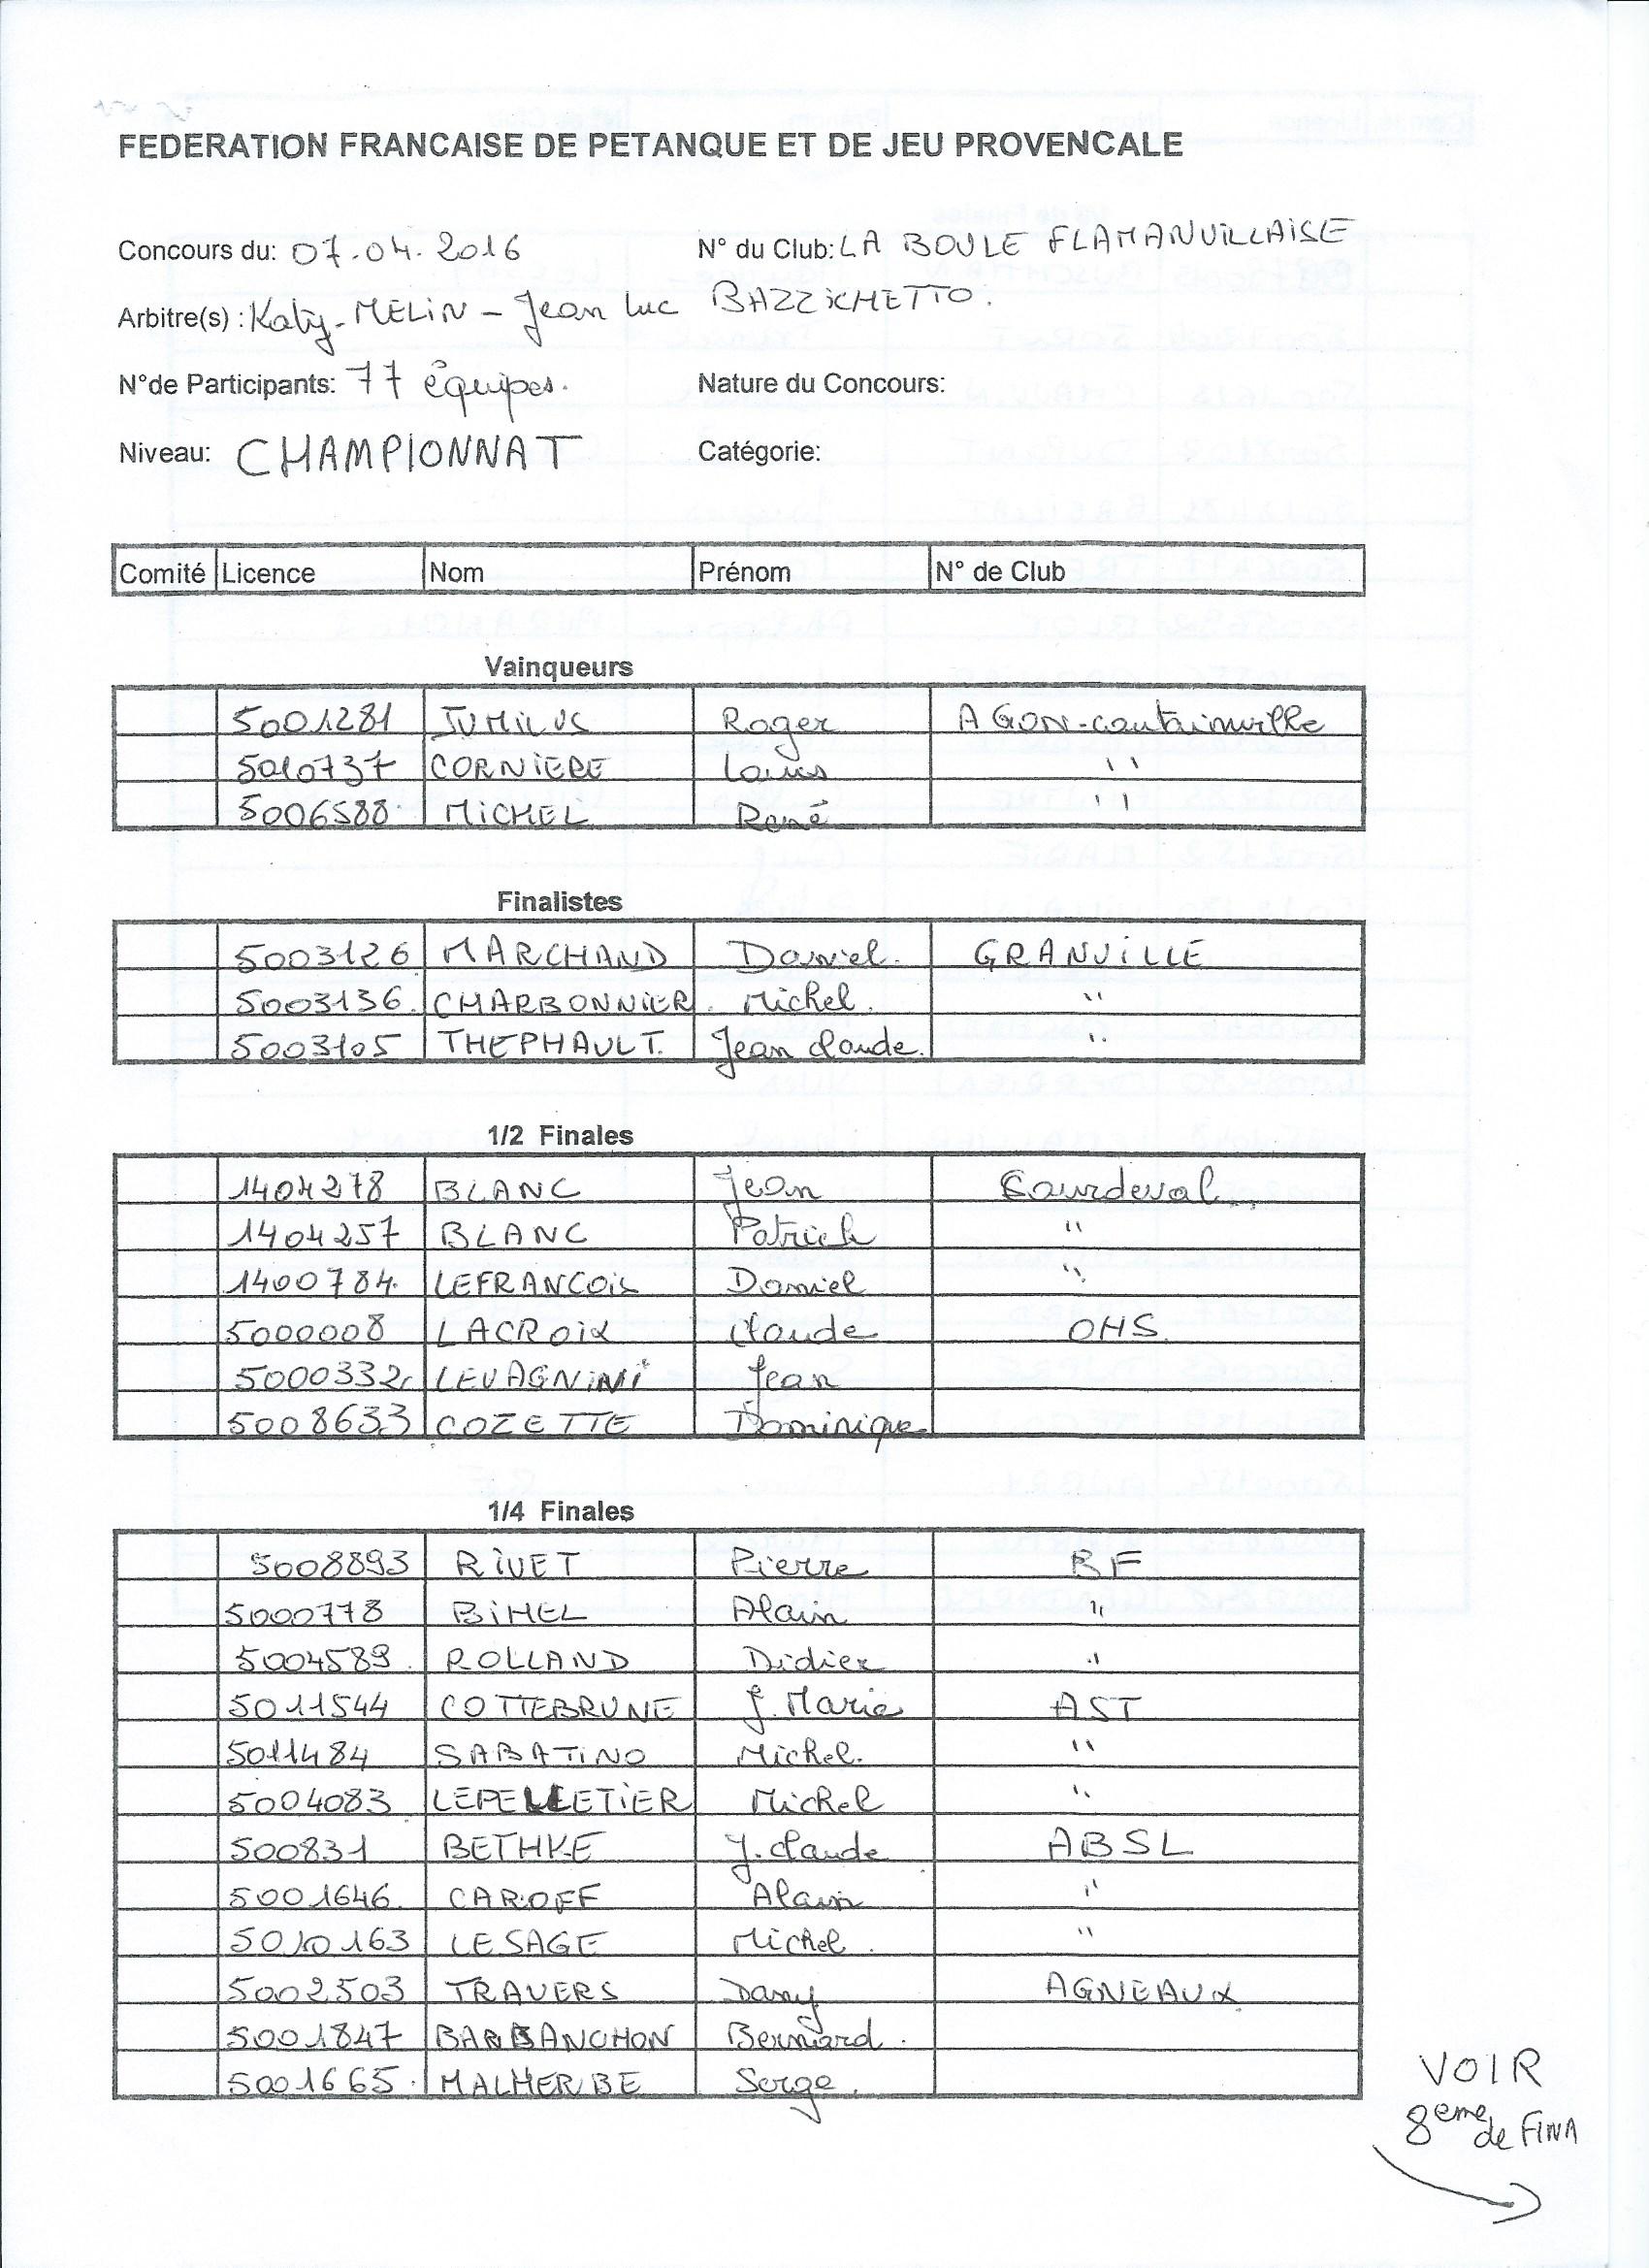 FEDERATION FRANCAISE DE PETANQUE ET DE JEU PROVENCALE
Concours du: 07.04.2016 N° du Club: LA BOULE FLAMANVILLAISE
Arbitre(s) : Katy-MELIN - Jean Luc BAZZICHETTO.
N°de Participants: 77 équipes. Nature du Concours:
Niveau: CHAMPIONNAT Catégorie:
Comité Licence Nom Prénom N° de Club
Vainqueurs
5001281 JUMILUS Roger AGON-coutainville
5010737 CORNIERE Louis ''
5006588 MICHEL René ''
Finalistes
5003126 MARCHAND Daniel. GRANVILLE
5003136. CHARBONNIER. Michel. ''
5003105 THEPHAULT. Jean claude. ''
1/2 Finales
1404278 BLANC Jean Sourdeval
1404257 BLANC Patrick ''
1400784. LEFRANCOIS Daniel ''
5000008 LACROIX Claude OHS.
5000332 LEVAGNINI Jean
5008633 COZETTE Dominique
1/4 Finales
5008893 RIVET Pierre BF
5000778 BIHEL Alain ''
5004589. ROLLAND Didier ''
5011544 COTTEBRUNE J. Marie AST
5011484 SABATINO Michel. ''
5004083 LEPELLETIER Michel ''
500831 BETHKE J. claude ABSL
5001646. CAROFF Alain ''
5010163 LESAGE Michel. ''
5002503 TRAVERS Dany AGNEAUX
5001847 BARBANCHON Bernard.
5001665. MALHERBE Serge.
VOIR
8eme de FINA